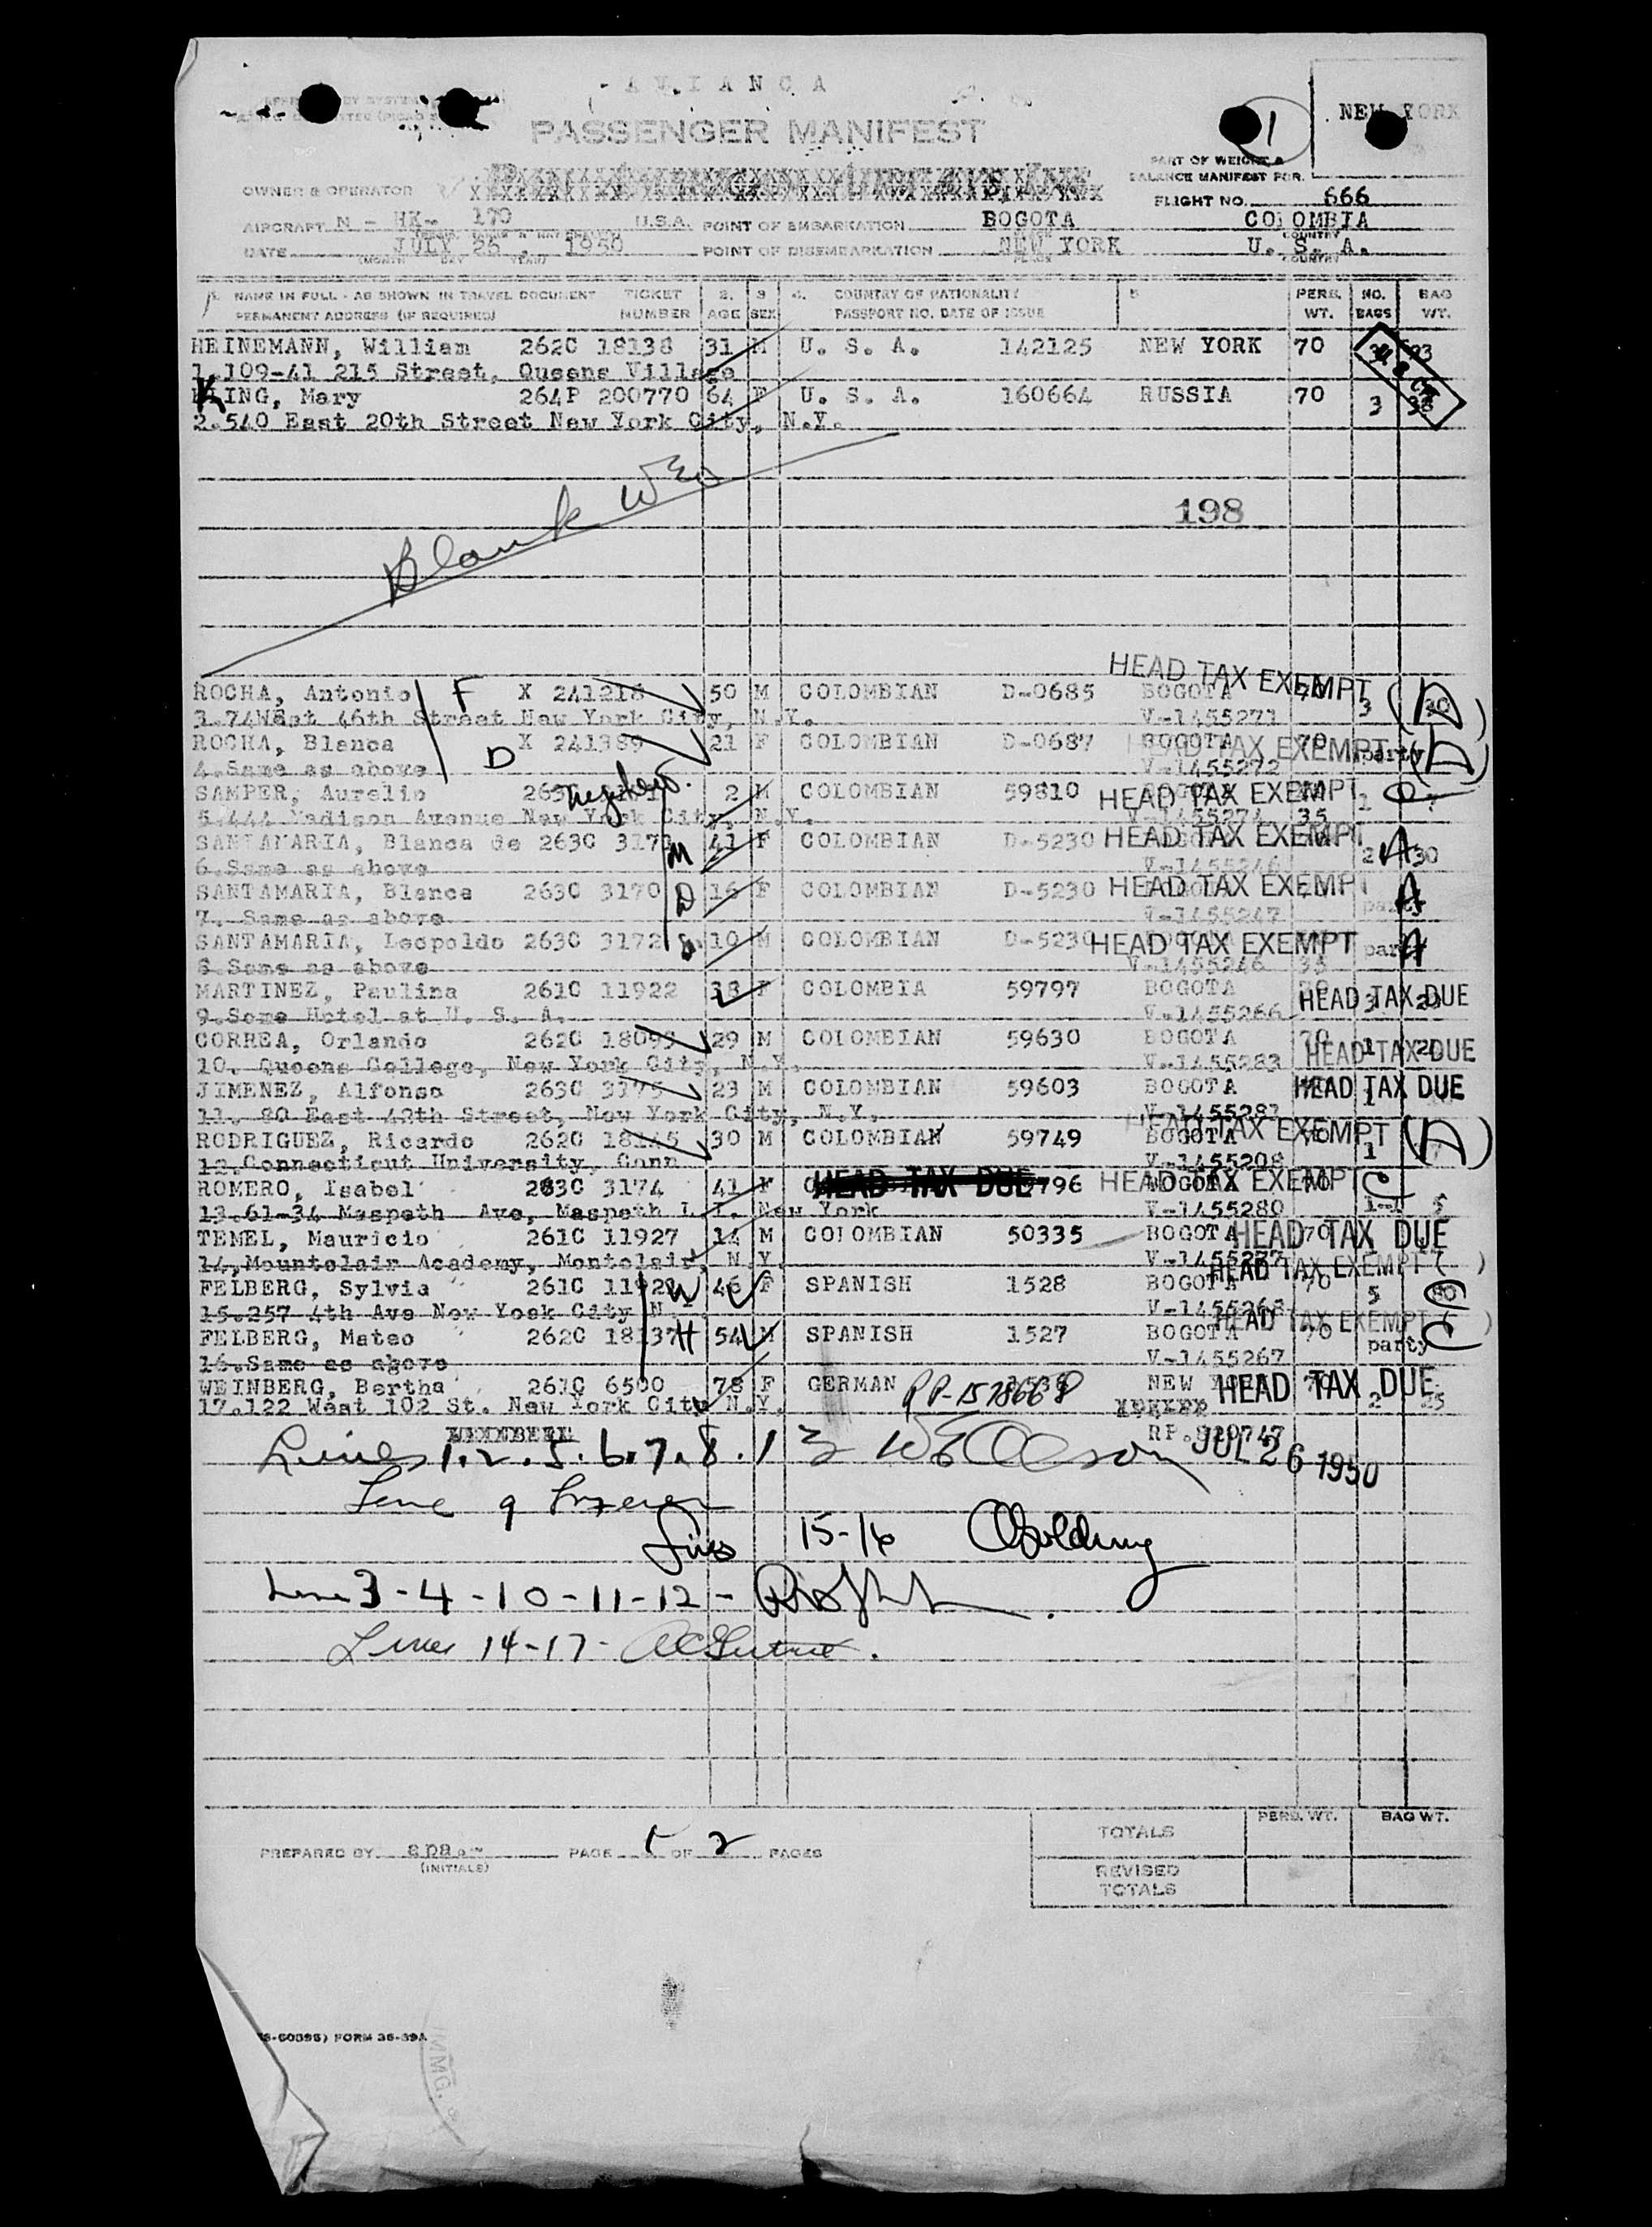 AVIANCA
PASSENGER MANIFEST
1
NEW YORK
PART OF WEIGHT &
BALANCE MANIFEST FOR.
OWNER & OPERATOR
FLIGHT NO. 666
AIRCRAFT N - HK- 170 U.S.A. POINT OF EMBARKATION BOGOTA COLOMBIA
DATE JULY 26, 1950 POINT OF DISEMBARKATION NEW YORK U. S. A.
(MONTH DAY YEAR) PLACE COUNTRY
1. NAME IN FULL - AS SHOWN IN TRAVEL DOCUMENT TICKET 2. 3 4. COUNTRY OF NATIONALITY 5 PERS. NO. BAG
PERMANENT ADDRESS (IF REQUIRED) NUMBER AGE SEX PASSPORT NO. DATE OF ISSUE WT. BAGS WT.
HEINEMANN, William 262C 18138 31 M U. S. A. 142125 NEW YORK 70
1.109-41 215 Street, Queens Village
KLING, Mary 264P 200770 64 F U. S. A. 160664 RUSSIA 70 3 38
2.540 East 20th Street New York City, N.Y.
Blank WEO
198
HEAD TAX EXEMPT
ROCHA, Antonio F X 241218 50 M COLOMBIAN D-0685 BOGOTA 3 (A)
3.74West 46th Street New York City, N.Y. V-1455271
ROCHA, Blanca D X 241389 21 F COLOMBIAN D-0687 BOGOTA 70 HEAD TAX EXEMPT party (A)
4.Same as above V-1455272
SAMPER, Aurelio 263C nephew 2 M COLOMBIAN 59810 HEAD TAX EXEMPT 1 7
5.444 Madison Avenue New York City, N.Y. V-1455274 35
SANTAMARIA, Blanca de 263C 3173 M 41 F COLOMBIAN D-5230 HEAD TAX EXEMPT 2 A 30
6.Same as above V-1455246
SANTAMARIA, Blanca 263C 3170 D 16 F COLOMBIAN D-5230 HEAD TAX EXEMPT party A
7. Same as above V-1455247
SANTAMARIA, Leopoldo 263C 3172 S 10 M COLOMBIAN D-5230 HEAD TAX EXEMPT party A
8.Same as above V-1455246 35
MARTINEZ, Paulina 261C 11922 38 F COLOMBIA 59797 BOGOTA HEAD TAX DUE 3
9.Some Hotel at U. S. A. V-1455266
CORREA, Orlando 262C 18099 29 M COLOMBIAN 59630 BOGOTA 70 1
10. Queens College, New York City, N.Y. V-1455283 HEAD TAX DUE
JIMENEZ, Alfonso 263C 3175 23 M COLOMBIAN 59603 BOGOTA HEAD TAX DUE 1
11. 80 East 42th Street, New York City, N.Y. V-1455281
RODRIGUEZ, Ricardo 262C 18145 30 M COLOMBIAN 59749 BOGOTA HEAD TAX EXEMPT 1 (A)
12.Connecticut University, Conn V-1455208
ROMERO, Isabel 263C 3174 41 F HEAD TAX DUE 59796 HEAD TAX EXEMPT C
13.61-34 Maspeth Ave, Maspeth L.I. New York V-1455280 5
TEMEL, Mauricio 261C 11927 14 M COLOMBIAN 50335 BOGOTA 70 HEAD TAX DUE
14,Mountclair Academy, Montclair, N.Y. V-1455277
HEAD TAX EXEMPT ( )
FELBERG, Sylvia 261C 11928 W 46 F SPANISH 1528 BOGOTA 70 5 80
15.257 4th Ave New York City N. V-1455268
HEAD TAX EXEMPT ( )
FELBERG, Mateo 262C 18137 H 54 M SPANISH 1527 BOGOTA 70 party C
16.Same as above V-1455267
WEINBERG, Bertha 261C 6500 78 F GERMAN RP-1578668 NEW HEAD TAX DUE 2 25
17.122 West 102 St. New York City N.Y.
JUL 26 1950
Lines 1.2.5.6.7.8.13 WE Olson
Line 9
Lines 15-16 Golding
Line 3-4-10-11-12-
Lines 14-17-
TOTALS PERS. WT. BAG WT.
REVISED
TOTALS
PREPARED BY (INITIALS) PAGE 1 OF 2 PAGES
FORM 36-39A
IMMG. &